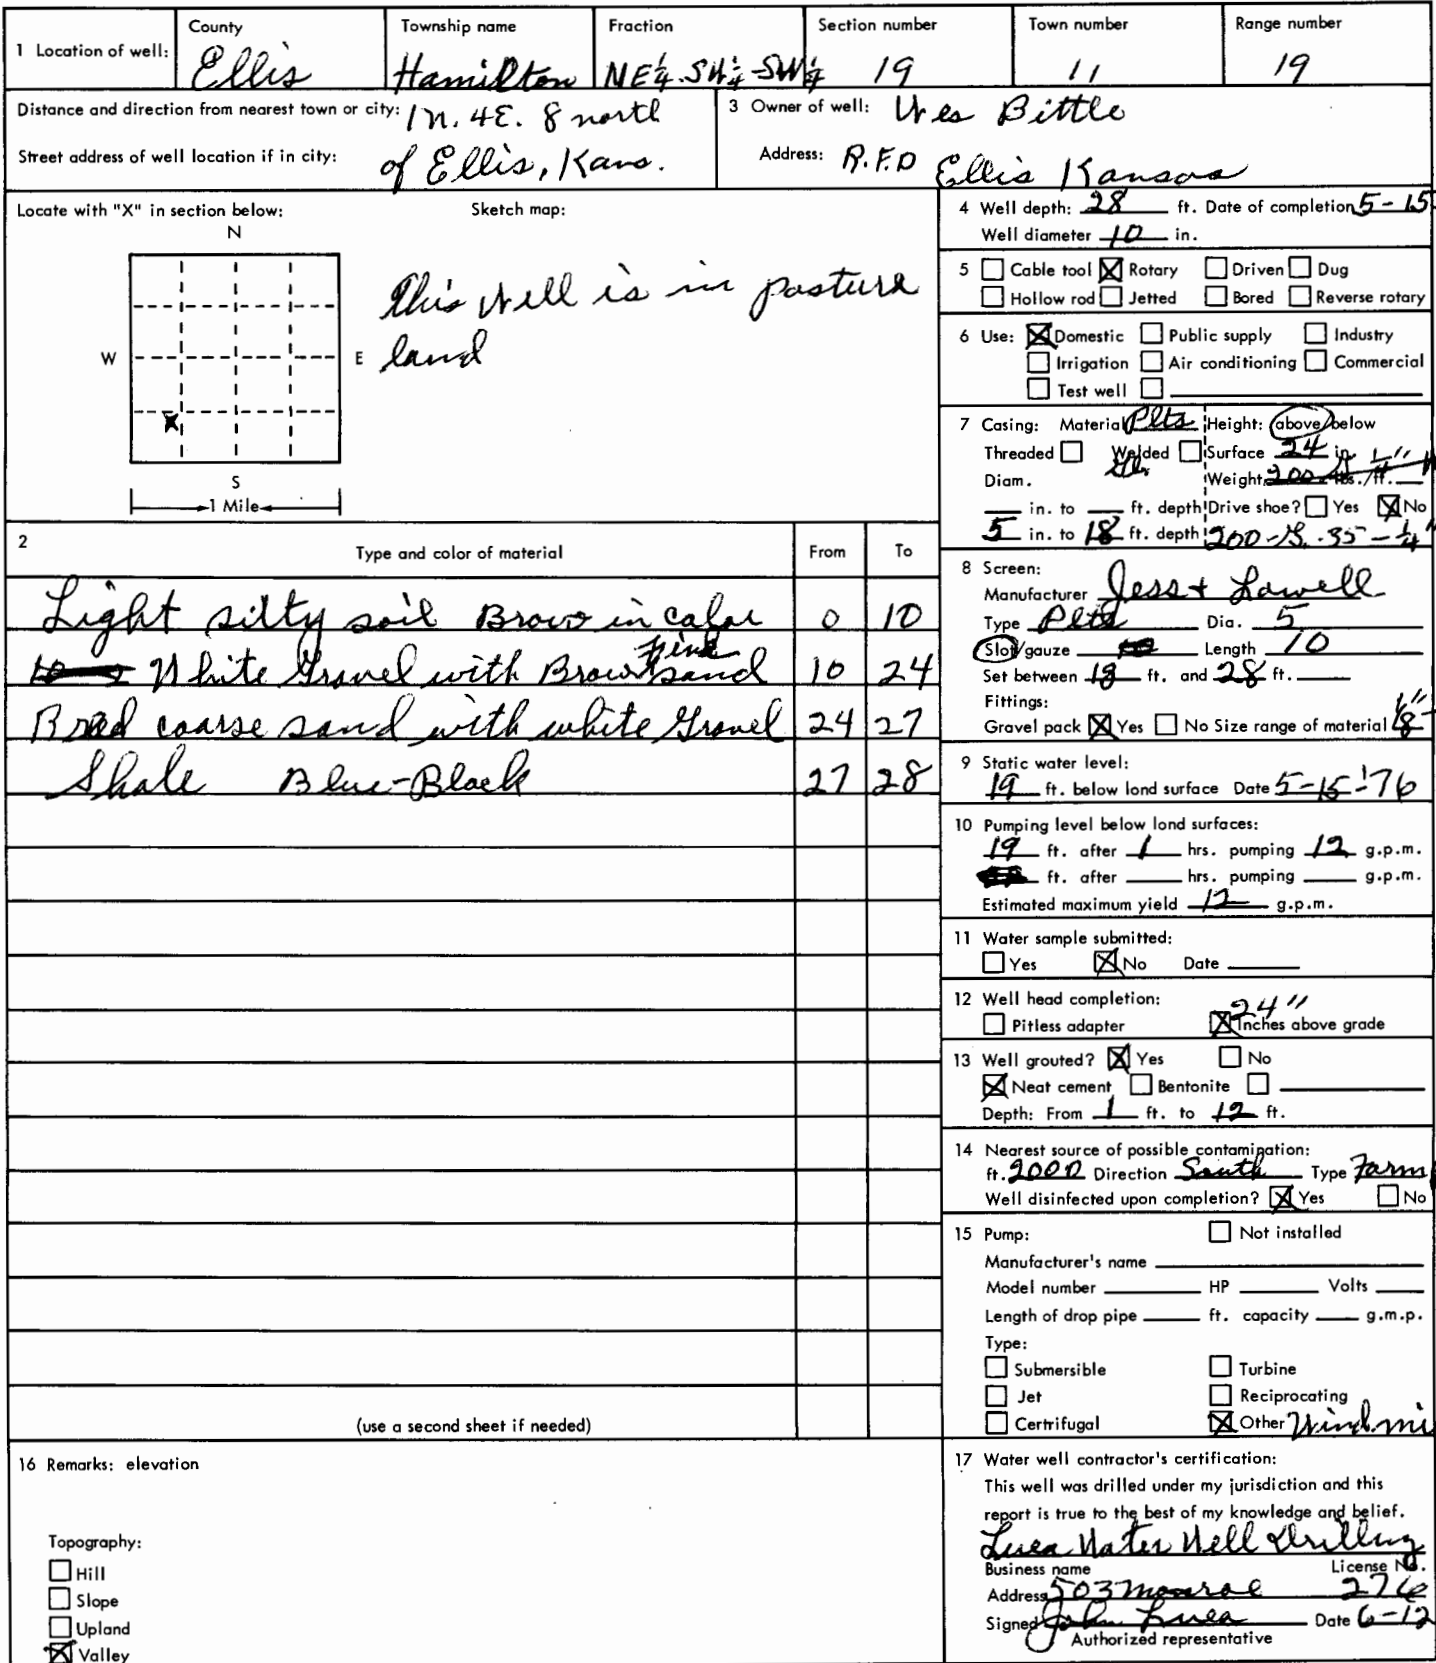 1 Location of well:
County
Ellis
Township name
Hamilton
Fraction
NE¼ SW¼ SW¼
Section number
19
Town number
11
Range number
19
Distance and direction from nearest town or city: 1N. 4E. 8 north
Street address of well location if in city: of Ellis, Kans.
3 Owner of well: Wes Bittle
Address: R.F.D Ellis Kansas
Locate with "X" in section below:
Sketch map:
N
W
E
S
1 Mile
X
This well is in pasture
land
4 Well depth: 28 ft. Date of completion 5-15
Well diameter 10 in.
5 Cable tool X Rotary Driven Dug
Hollow rod Jetted Bored Reverse rotary
6 Use: X Domestic Public supply Industry
Irrigation Air conditioning Commercial
Test well
7 Casing: Material Plts Height: above/below
Threaded Welded Surface 24 in.
Diam. Weight lbs./ft.
in. to ft. depth Drive shoe? Yes X No
5 in. to 18 ft. depth 200
8 Screen:
Manufacturer Jess + Lowell
Type Dia. 5
Slot/gauze Length 10
Set between 18 ft. and 28 ft.
Fittings:
Gravel pack X Yes No Size range of material
9 Static water level:
19 ft. below lond surface Date 5-15-'76
10 Pumping level below lond surfaces:
19 ft. after 1 hrs. pumping 12 g.p.m.
ft. after hrs. pumping g.p.m.
Estimated maximum yield 12 g.p.m.
11 Water sample submitted:
Yes X No Date
12 Well head completion:
Pitless adapter X 24" Inches above grade
13 Well grouted? X Yes No
X Neat cement Bentonite
Depth: From 1 ft. to 12 ft.
14 Nearest source of possible contamination:
ft. 2000 Direction South Type Farm
Well disinfected upon completion? X Yes No
15 Pump: Not installed
Manufacturer's name
Model number HP Volts
Length of drop pipe ft. capacity g.m.p.
Type:
Submersible Turbine
Jet Reciprocating
Certrifugal X Other Windmi
2 Type and color of material From To
Light silty soil Brow in color 0 10
White Gravel with Brow fine sand 10 24
coarse sand with white Gravel 24 27
Shale Blue-Black 27 28
(use a second sheet if needed)
16 Remarks: elevation
Topography:
Hill
Slope
Upland
X Valley
17 Water well contractor's certification:
This well was drilled under my jurisdiction and this
report is true to the best of my knowledge and belief.
Luea Water Well Drilling
Business name License No.
Address 503 Monroe 276
Signed John Luea Date 6-12
Authorized representative